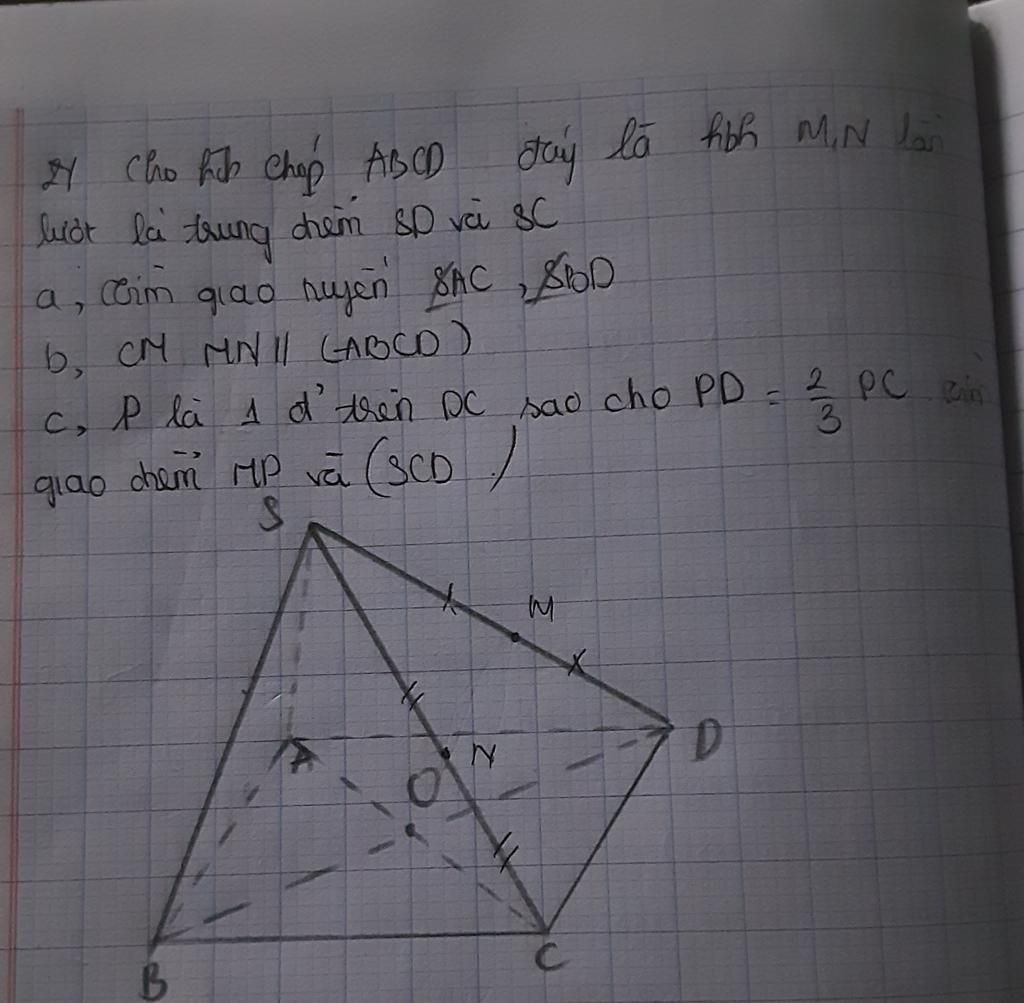 2/ Cho hh chóp ABCD đáy là hbh M,N lần
lượt là trung điểm SD và SC
a, Tìm giao tuyến SAC, SBD
b, CM MN // (ABCD)
c, P là 1 đ' trên DC sao cho PD = 2/3 PC tìm
giao điểm MP và (SCD)
S
M
A
N
D
O
B
C